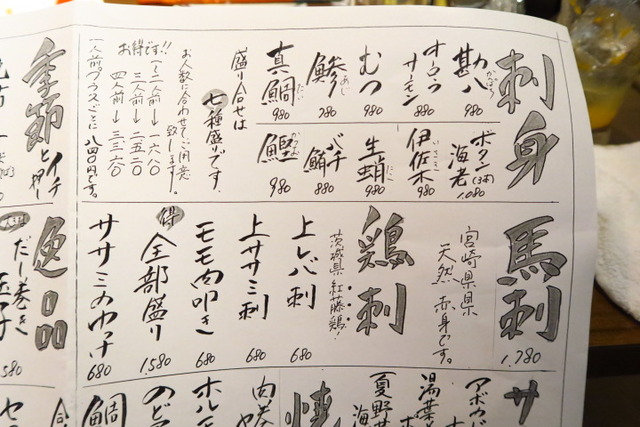 刺身
勘八
かんぱち
880
オーロラサーモン
880
むつ
980
鯵
あじ
780
真鯛
たい
980
ボタン海老(3本)
1,080
伊佐木
いさき
980
生蛸
たこ
980
バチ鮪
880
鰹
かつお
980
盛り合せは
七種盛りです。
お人数に合わせてご用意
致します。
お得です!!
(1〜2人前→一六八〇
三人前→二五二〇
四人前→三三六〇
一人前プラスごとに八四〇円です。
馬刺
1,780
宮崎県
天然赤身です。
鶏刺
茨城県紅藤鶏!
上レバ刺
680
上ササミ刺
680
モモ肉叩き
680
得
全部盛り
1,580
ササミのユッケ
680
季節と
イチ押し
逸品
だし巻き玉子
580
サ
アボカド
湯葉
夏野菜
焼
ホルモ
のど
鯛